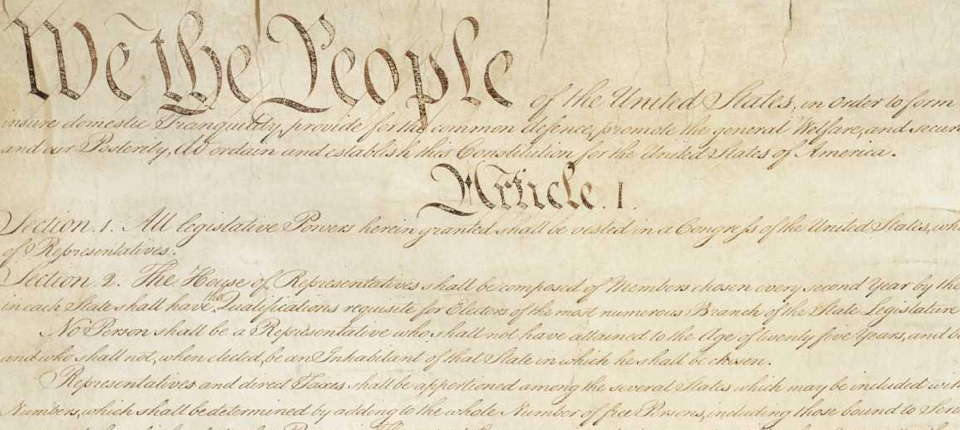 We the People of the United States, in Order to form
insure domestic Tranquility, provide for the common defence, promote the general Welfare, and secure
and our Posterity, do ordain and establish this Constitution for the United States of America.
Article. I.
Section. 1. All legislative Powers herein granted shall be vested in a Congress of the United States,
of Representatives.
Section. 2. The House of Representatives shall be composed of Members chosen every second Year by the
in each State shall have the Qualifications requisite for Electors of the most numerous Branch of the State Legislature
No Person shall be a Representative who shall not have attained to the Age of twenty five Years, and
and who shall not, when elected, be an Inhabitant of that State in which he shall be chosen.
Representatives and direct Taxes shall be apportioned among the several States which may be included
Numbers, which shall be determined by adding to the whole Number of free Persons, including those bound to